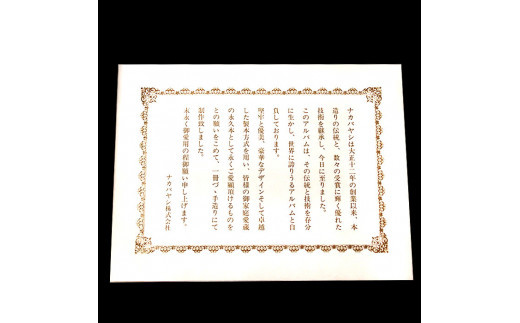 ナカバヤシは大正十二年の創業以来、本
造りの伝統と、数々の受賞に輝く優れた
技術を継承し、今日に至りました。
このアルバムは、その伝統と技術を存分
に生かし、世界に誇りうるアルバムと自
負しております。
堅牢と優美、豪華なデザインそして卓越
した製本方式を用い、皆様の御家庭愛蔵
の永久本として永くご愛顧頂けるものを
との願いをこめて、一冊づゝ手造りにて
制作致しました。
末永く御愛用の程御願い申し上げます。
ナカバヤシ株式会社